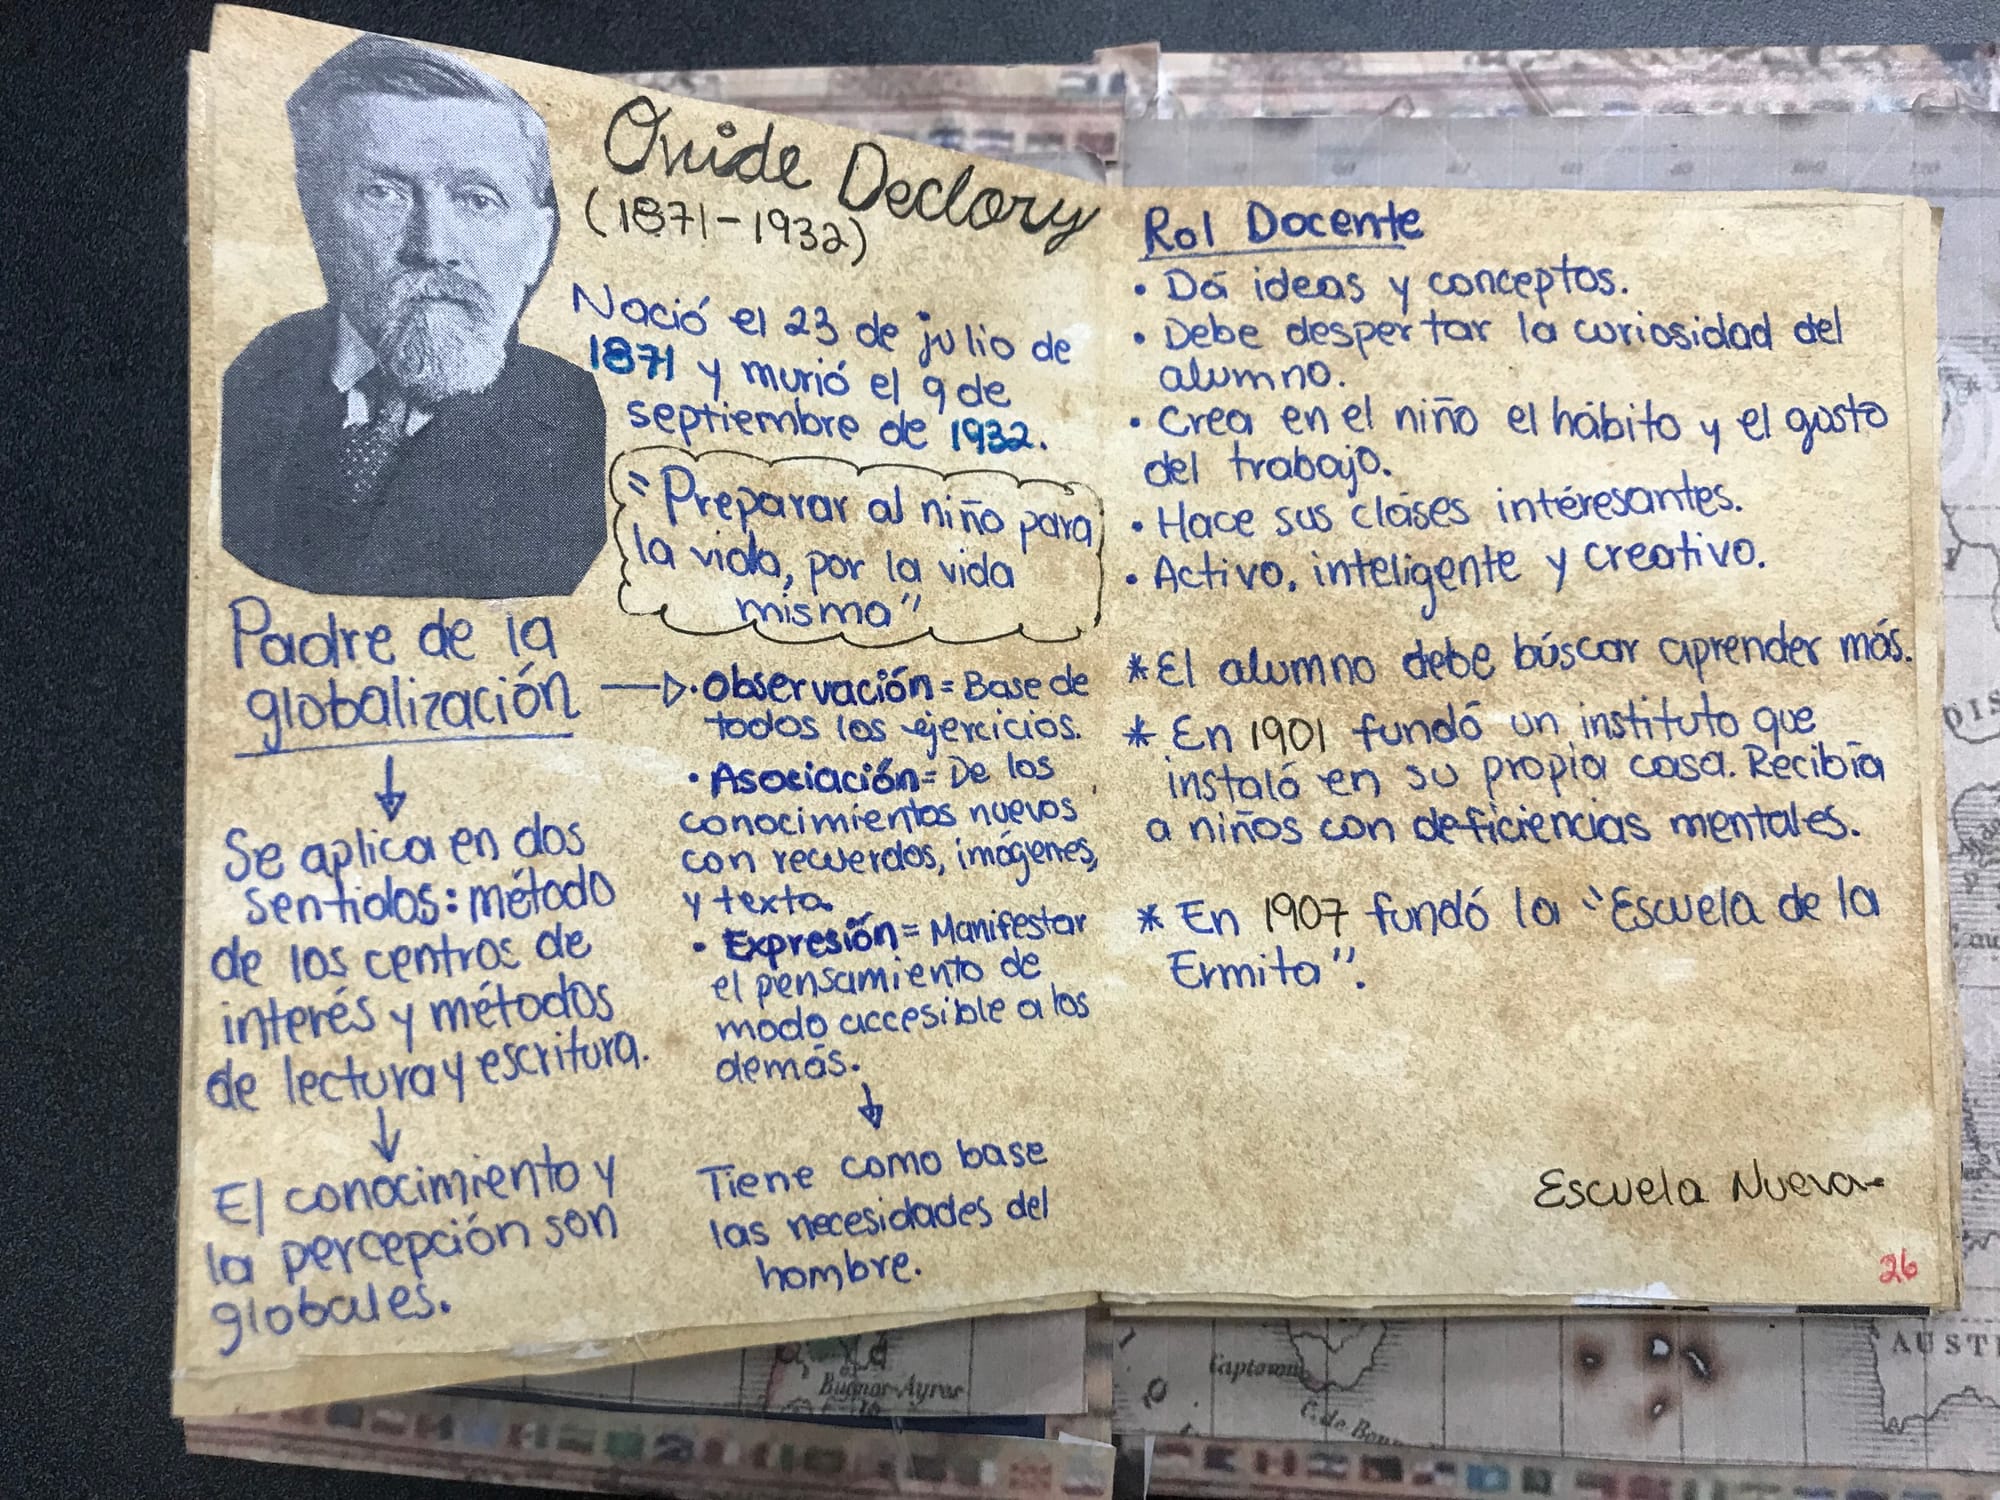 Ovide Declory
(1871-1932)
Nació el 23 de julio de
1871 y murió el 9 de
septiembre de 1932.
"Preparar al niño para
la vida, por la vida
misma"
Padre de la
globalización
Se aplica en dos
sentidos: método
de los centros de
interés y métodos
de lectura y escritura.
El conocimiento y
la percepción son
globales.
• Observación = Base de
todos los ejercicios.
• Asociación = De los
conocimientos nuevos
con recuerdos, imágenes,
y texto.
• Expresión = Manifestar
el pensamiento de
modo accesible a los
demás.
Tiene como base
las necesidades del
hombre.
Rol Docente
• Dá ideas y conceptos.
• Debe despertar la curiosidad del
alumno.
• Crea en el niño el hábito y el gusto
del trabajo.
• Hace sus cláses intéresantes.
• Activo, inteligente y creativo.
* El alumno debe búscar aprender más.
* En 1901 fundó un instituto que
instaló en su propia casa. Recibía
a niños con deficiencias mentales.
* En 1907 fundó la "Escuela de la
Ermita".
Escuela Nueva
26
DIS
AUST
Buenos-Ayres